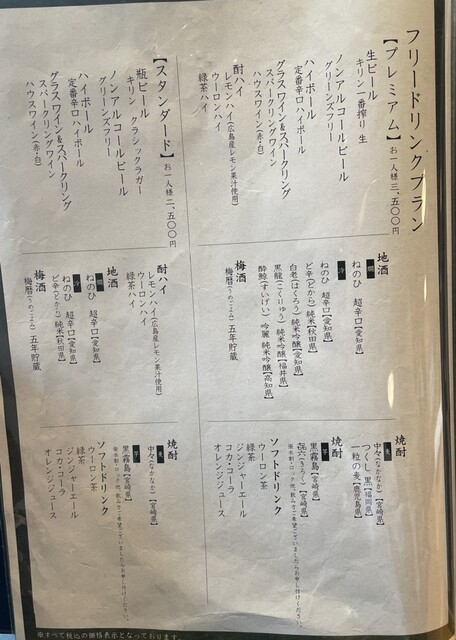 フリードリンクプラン
【プレミアム】 お一人様 三、五〇〇円
生ビール
キリン一番搾り 生
ノンアルコールビール
グリーンズフリー
ハイボール
定番辛口ハイボール
グラスワイン&スパークリング
スパークリングワイン
ハウスワイン(赤・白)
酎ハイ
レモンハイ(広島産レモン果汁使用)
ウーロンハイ
緑茶ハイ
地酒
燗
ねのひ 超辛口【愛知県】
冷
ねのひ 超辛口【愛知県】
ど辛(どから)純米【秋田県】
白老(はくろう)純米吟醸【愛知県】
黒龍(こくりゅう)純米吟醸【福井県】
酔鯨(すいげい)吟麗 純米吟醸【高知県】
梅酒
梅暦(うめごよみ)五年貯蔵
焼酎
麦
中々(なかなか)【宮崎県】
つくし 黒【福岡県】
一粒の麦【鹿児島県】
焼酎
芋
黒霧島【宮崎県】
㐂六(きろく)【宮崎県】
※水割・ロック他、飲み方ご希望ございましたらお申し付けください。
ソフトドリンク
ウーロン茶
緑茶
ジンジャーエール
コカ・コーラ
オレンジジュース
【スタンダード】 お一人様 二、五〇〇円
瓶ビール
キリン クラシックラガー
ノンアルコールビール
グリーンズフリー
ハイボール
定番辛口ハイボール
グラスワイン&スパークリング
スパークリングワイン
ハウスワイン(赤・白)
酎ハイ
レモンハイ(広島産レモン果汁使用)
ウーロンハイ
緑茶ハイ
地酒
燗
ねのひ 超辛口【愛知県】
冷
ねのひ 超辛口【愛知県】
ど辛(どから)純米【秋田県】
梅酒
梅暦(うめごよみ)五年貯蔵
焼酎
麦
中々(なかなか)【宮崎県】
芋
黒霧島【宮崎県】
※水割・ロック他、飲み方ご希望ございましたらお申し付けください。
ソフトドリンク
ウーロン茶
緑茶
ジンジャーエール
コカ・コーラ
オレンジジュース
※すべて税込の価格表示となっております。